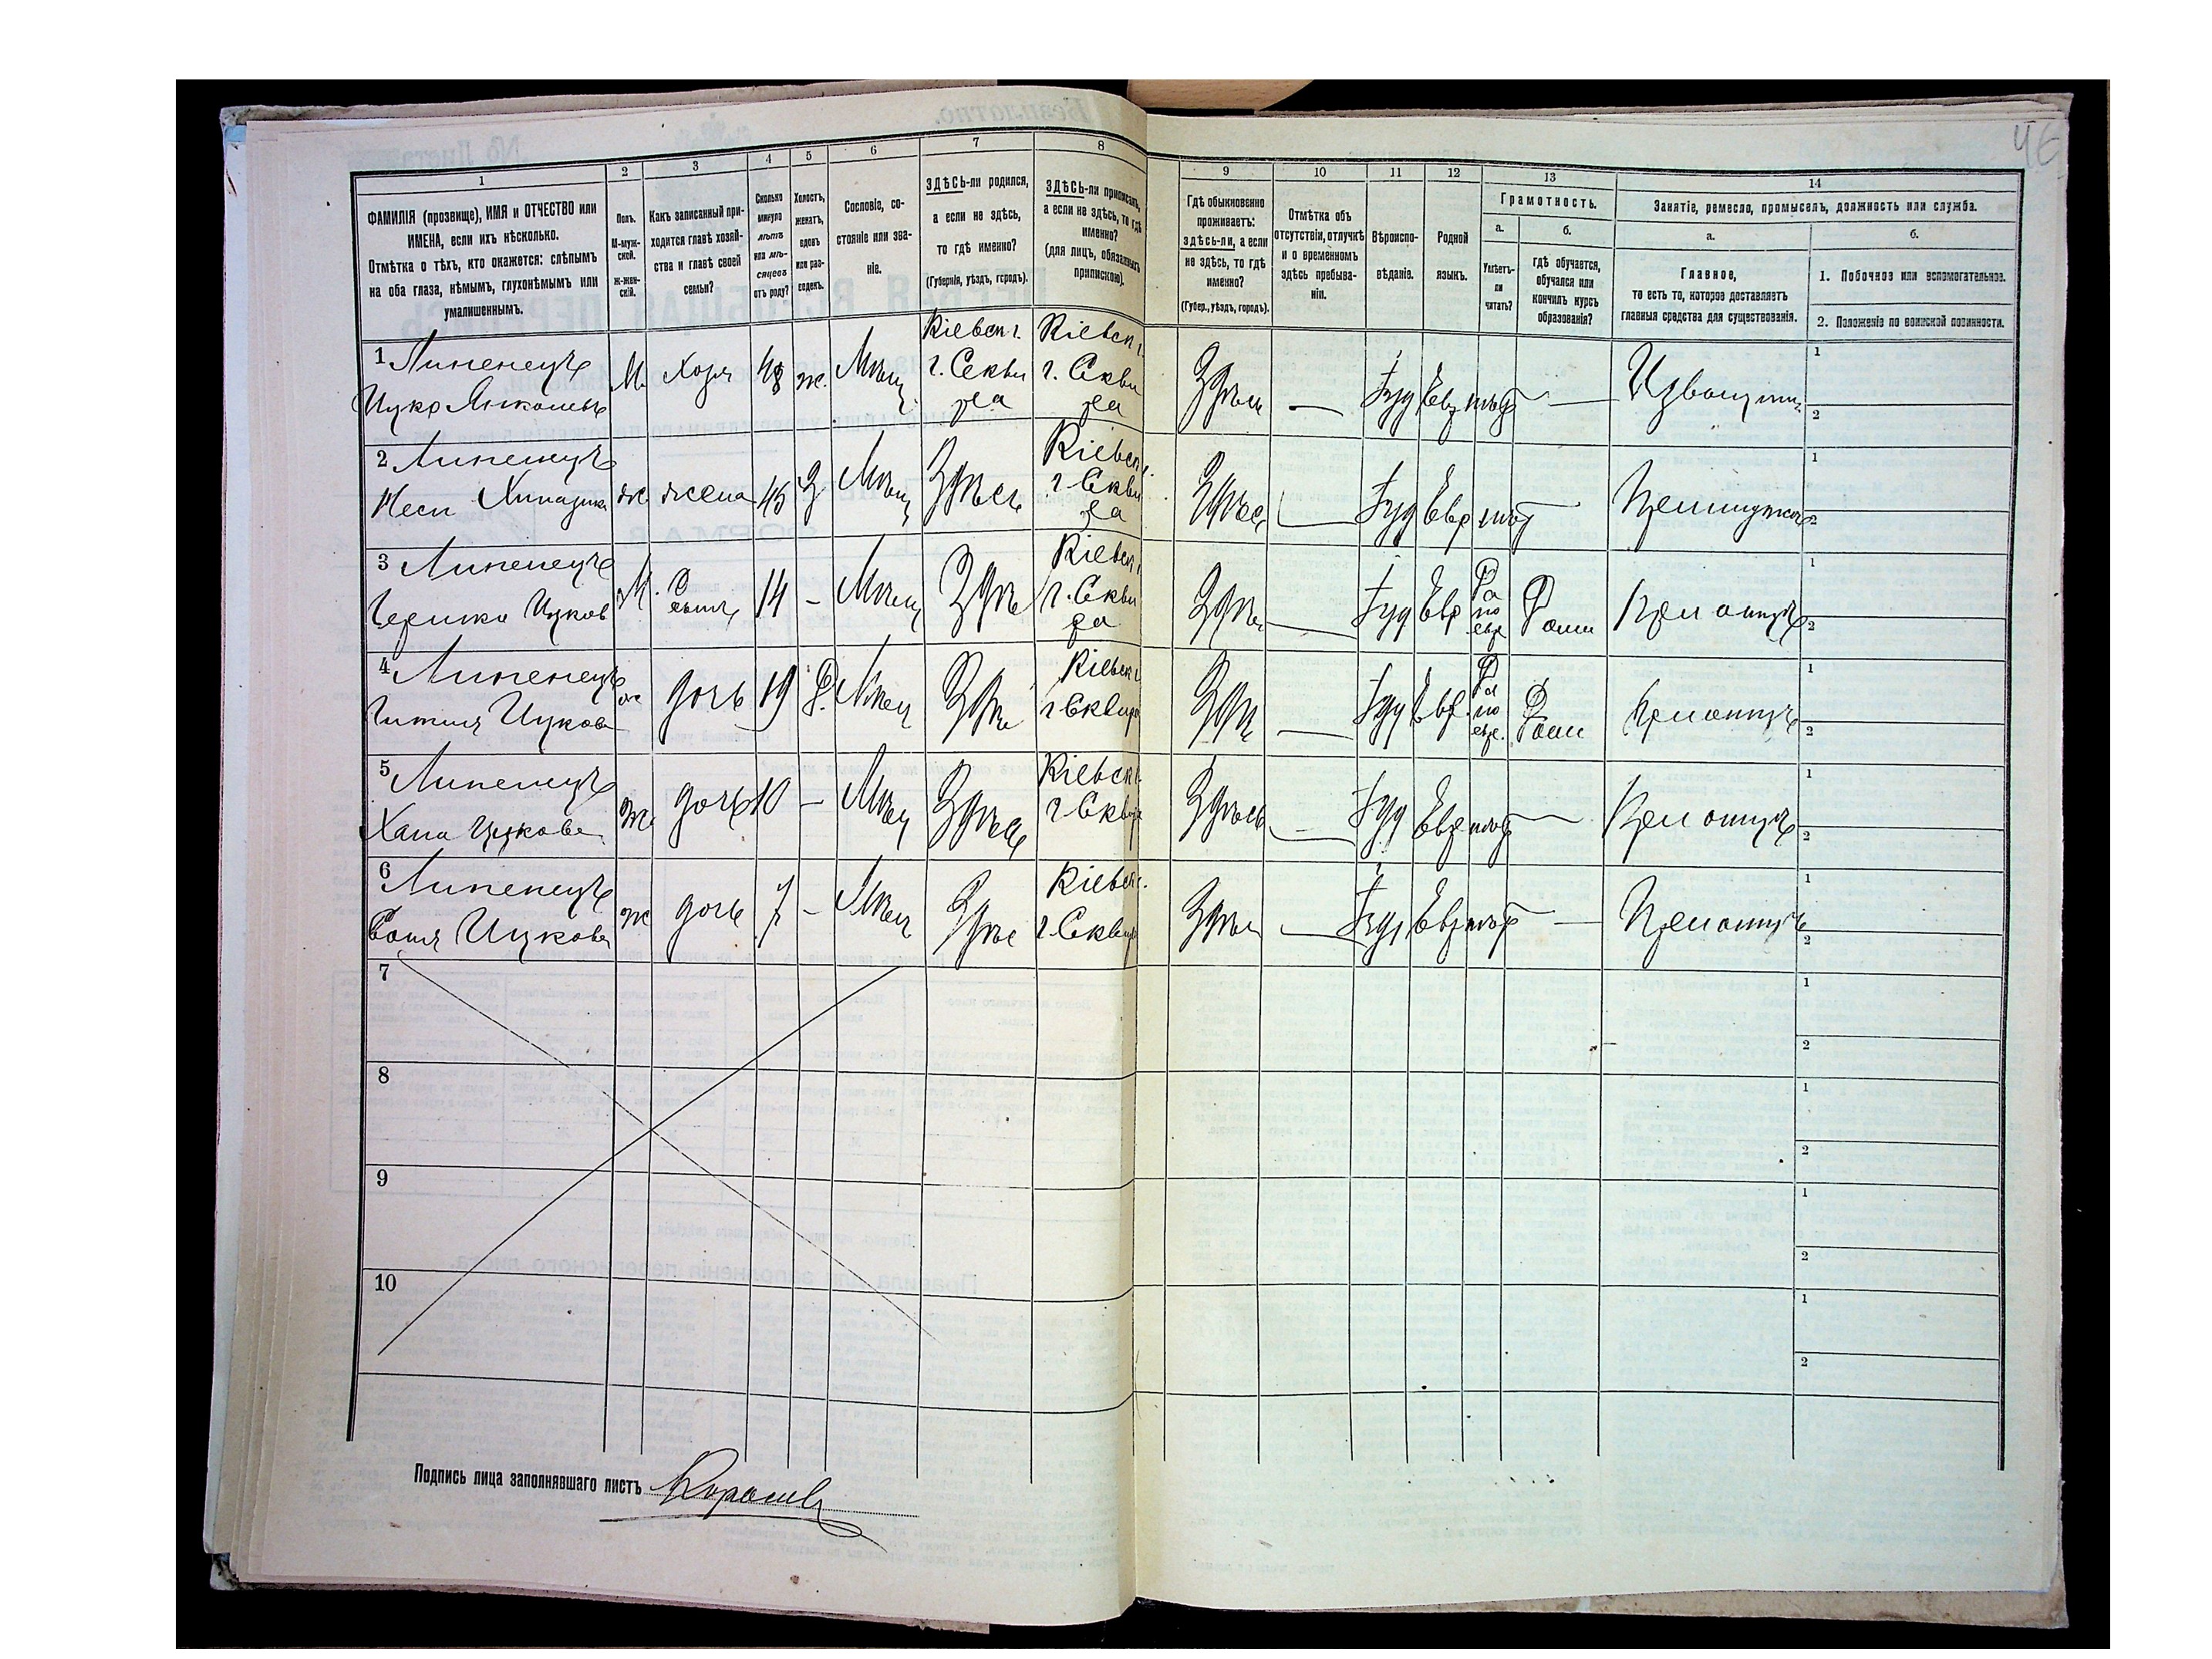 46
1
2
3
4
5
6
7
8
9
10
11
12
13
14
ФАМИЛІЯ (прозвище), ИМЯ и ОТЧЕСТВО или
ИМЕНА, если ихъ нѣсколько.
Отмѣтка о тѣхъ, кто окажется: слѣпымъ
на оба глаза, нѣмымъ, глухонѣмымъ или
умалишеннымъ.
Полъ.
М-муж-
ской.
ж-жен-
скій.
Какъ записанный при-
ходится главѣ хозяй-
ства и главѣ своей
семьи?
Сколько
минуло
лѣтъ
или мѣ-
сяцевъ
отъ роду?
Холостъ,
женатъ,
вдовъ
или раз-
веденъ.
Сословіе, со-
стояніе или зва-
ніе.
ЗДѢСЬ-ли родился,
а если не здѣсь,
то гдѣ именно?
(Губернія, уѣздъ, городъ).
ЗДѢСЬ-ли приписанъ,
а если не здѣсь, то гдѣ
именно?
(для лицъ, обязанныхъ
припискою).
Гдѣ обыкновенно
проживаетъ:
здѣсь-ли, а если
не здѣсь, то гдѣ
именно?
(Губер., уѣздъ, городъ).
Отмѣтка объ
отсутствіи, отлучкѣ
и о временномъ
здѣсь пребыва-
ніи.
Вѣроиспо-
вѣданіе.
Родной
языкъ.
Грамотность.
а.
Умѣетъ-
ли
читать?
б.
гдѣ обучается,
обучался или
кончилъ курсъ
образованія?
Занятіе, ремесло, промыселъ, должность или служба.
а.
Главное,
то есть то, которое доставляетъ
главныя средства для существованія.
б.
1. Побочное или вспомогательное.
2. Положеніе по воинской повинности.
1 Липенецъ М. Хозя 48 ж. Мѣщ. Кіевск г. г. Сквира Кіевск г. г. Сквира Здѣсь — Іуд Евр нѣтъ — Извощик 1 2
Ицко
2 Липенецъ ж. жена 45 З Мѣщ Здѣсь Кіевск г. г. Сквира Здѣсь — Іуд Евр нѣтъ — 1 2
3 Липенецъ М. Сынъ 14 - Мѣщ Здѣсь Кіевск г. г. Сквира Здѣсь — Іуд Евр Да по евр Дома При отцѣ 1 2
Ицков
4 Липенецъ ж дочь 19 Д. Мѣщ Здѣсь Кіевск г. г. Сквира Здѣсь — Іуд Евр. Да по евр. Дома При отцѣ 1 2
Ицкова
5 Липенецъ ж дочь 10 - Мѣщ Здѣсь Кіевск г. г. Сквира Здѣсь — Іуд Евр нѣтъ — При отцѣ 1 2
Хана Ицкова
6 Липенецъ ж дочь 7 - Мѣщ Здѣсь Кіевск г. г. Сквира Здѣсь — Іуд Евр нѣтъ — При отцѣ 1 2
Ицкова
7 1 2
8 1 2
9 1 2
10 1 2
Подпись лица заполнявшаго листъ